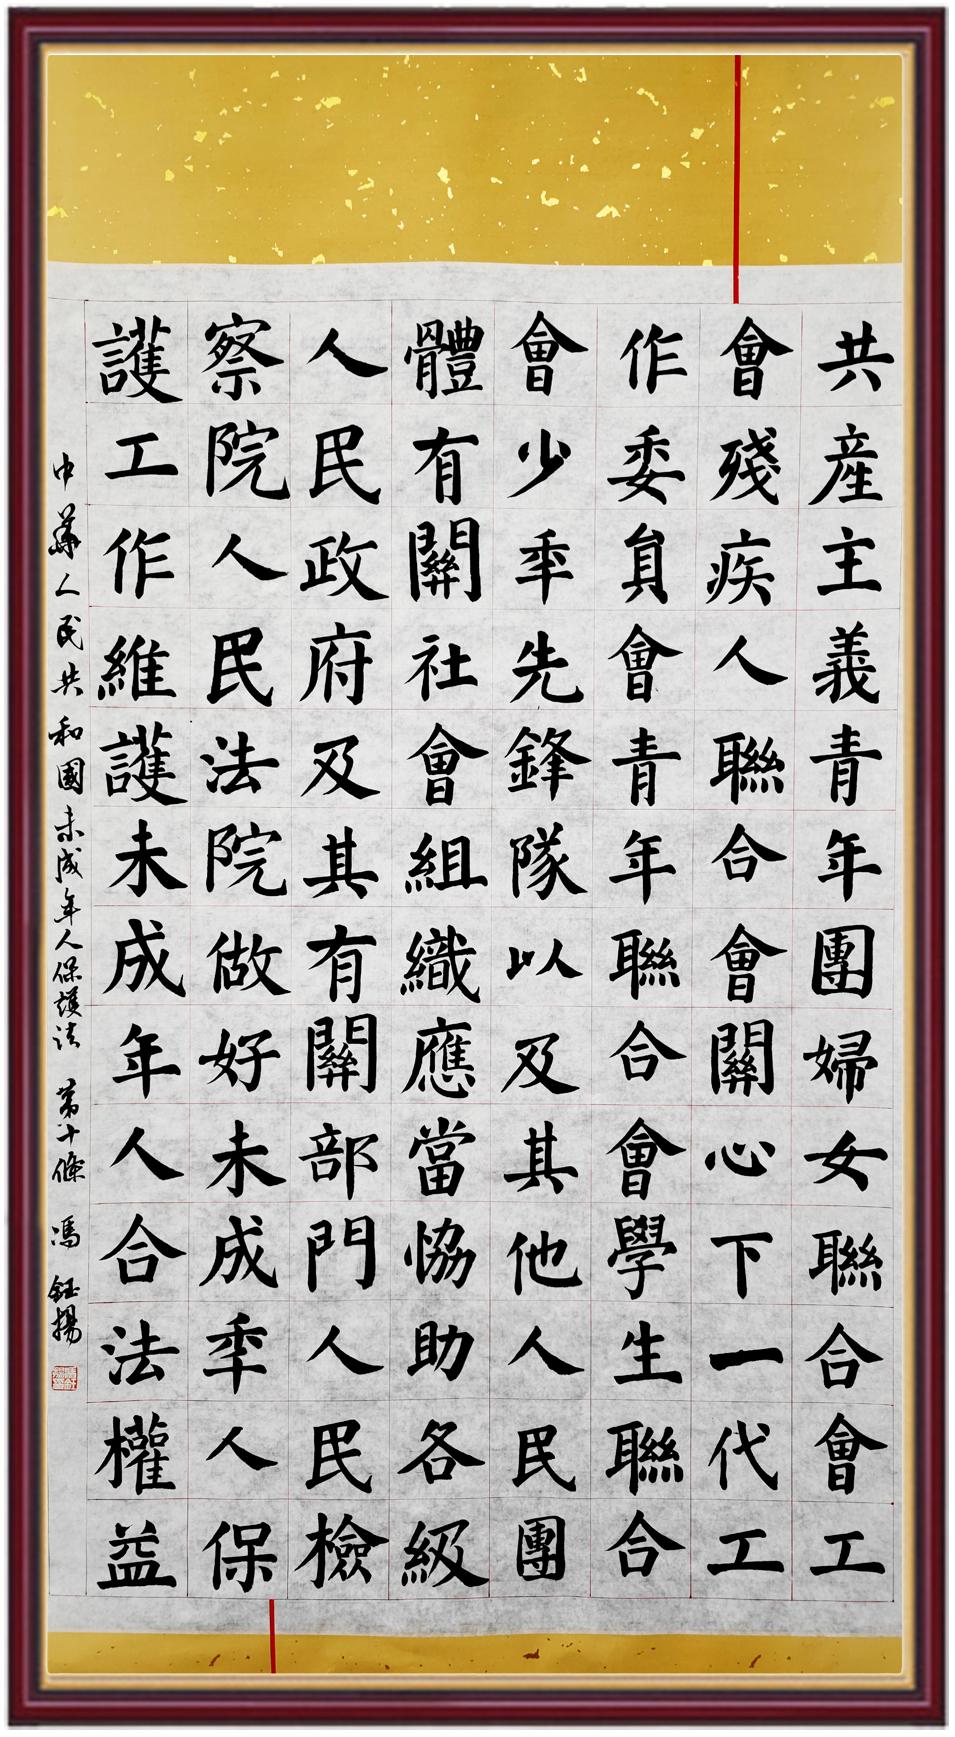 共産主義青年團婦女聯合會工
會殘疾人聯合會關心下一代工
作委員會青年聯合會學生聯合
會少秊先鋒隊以及其他人民團
體有關社會組織應當協助各級
人民政府及其有關部門人民檢
察院人民法院做好未成秊人保
護工作維護未成年人合法權益
中華人民共和國未成年人保護法 第十條 馮鈺揚